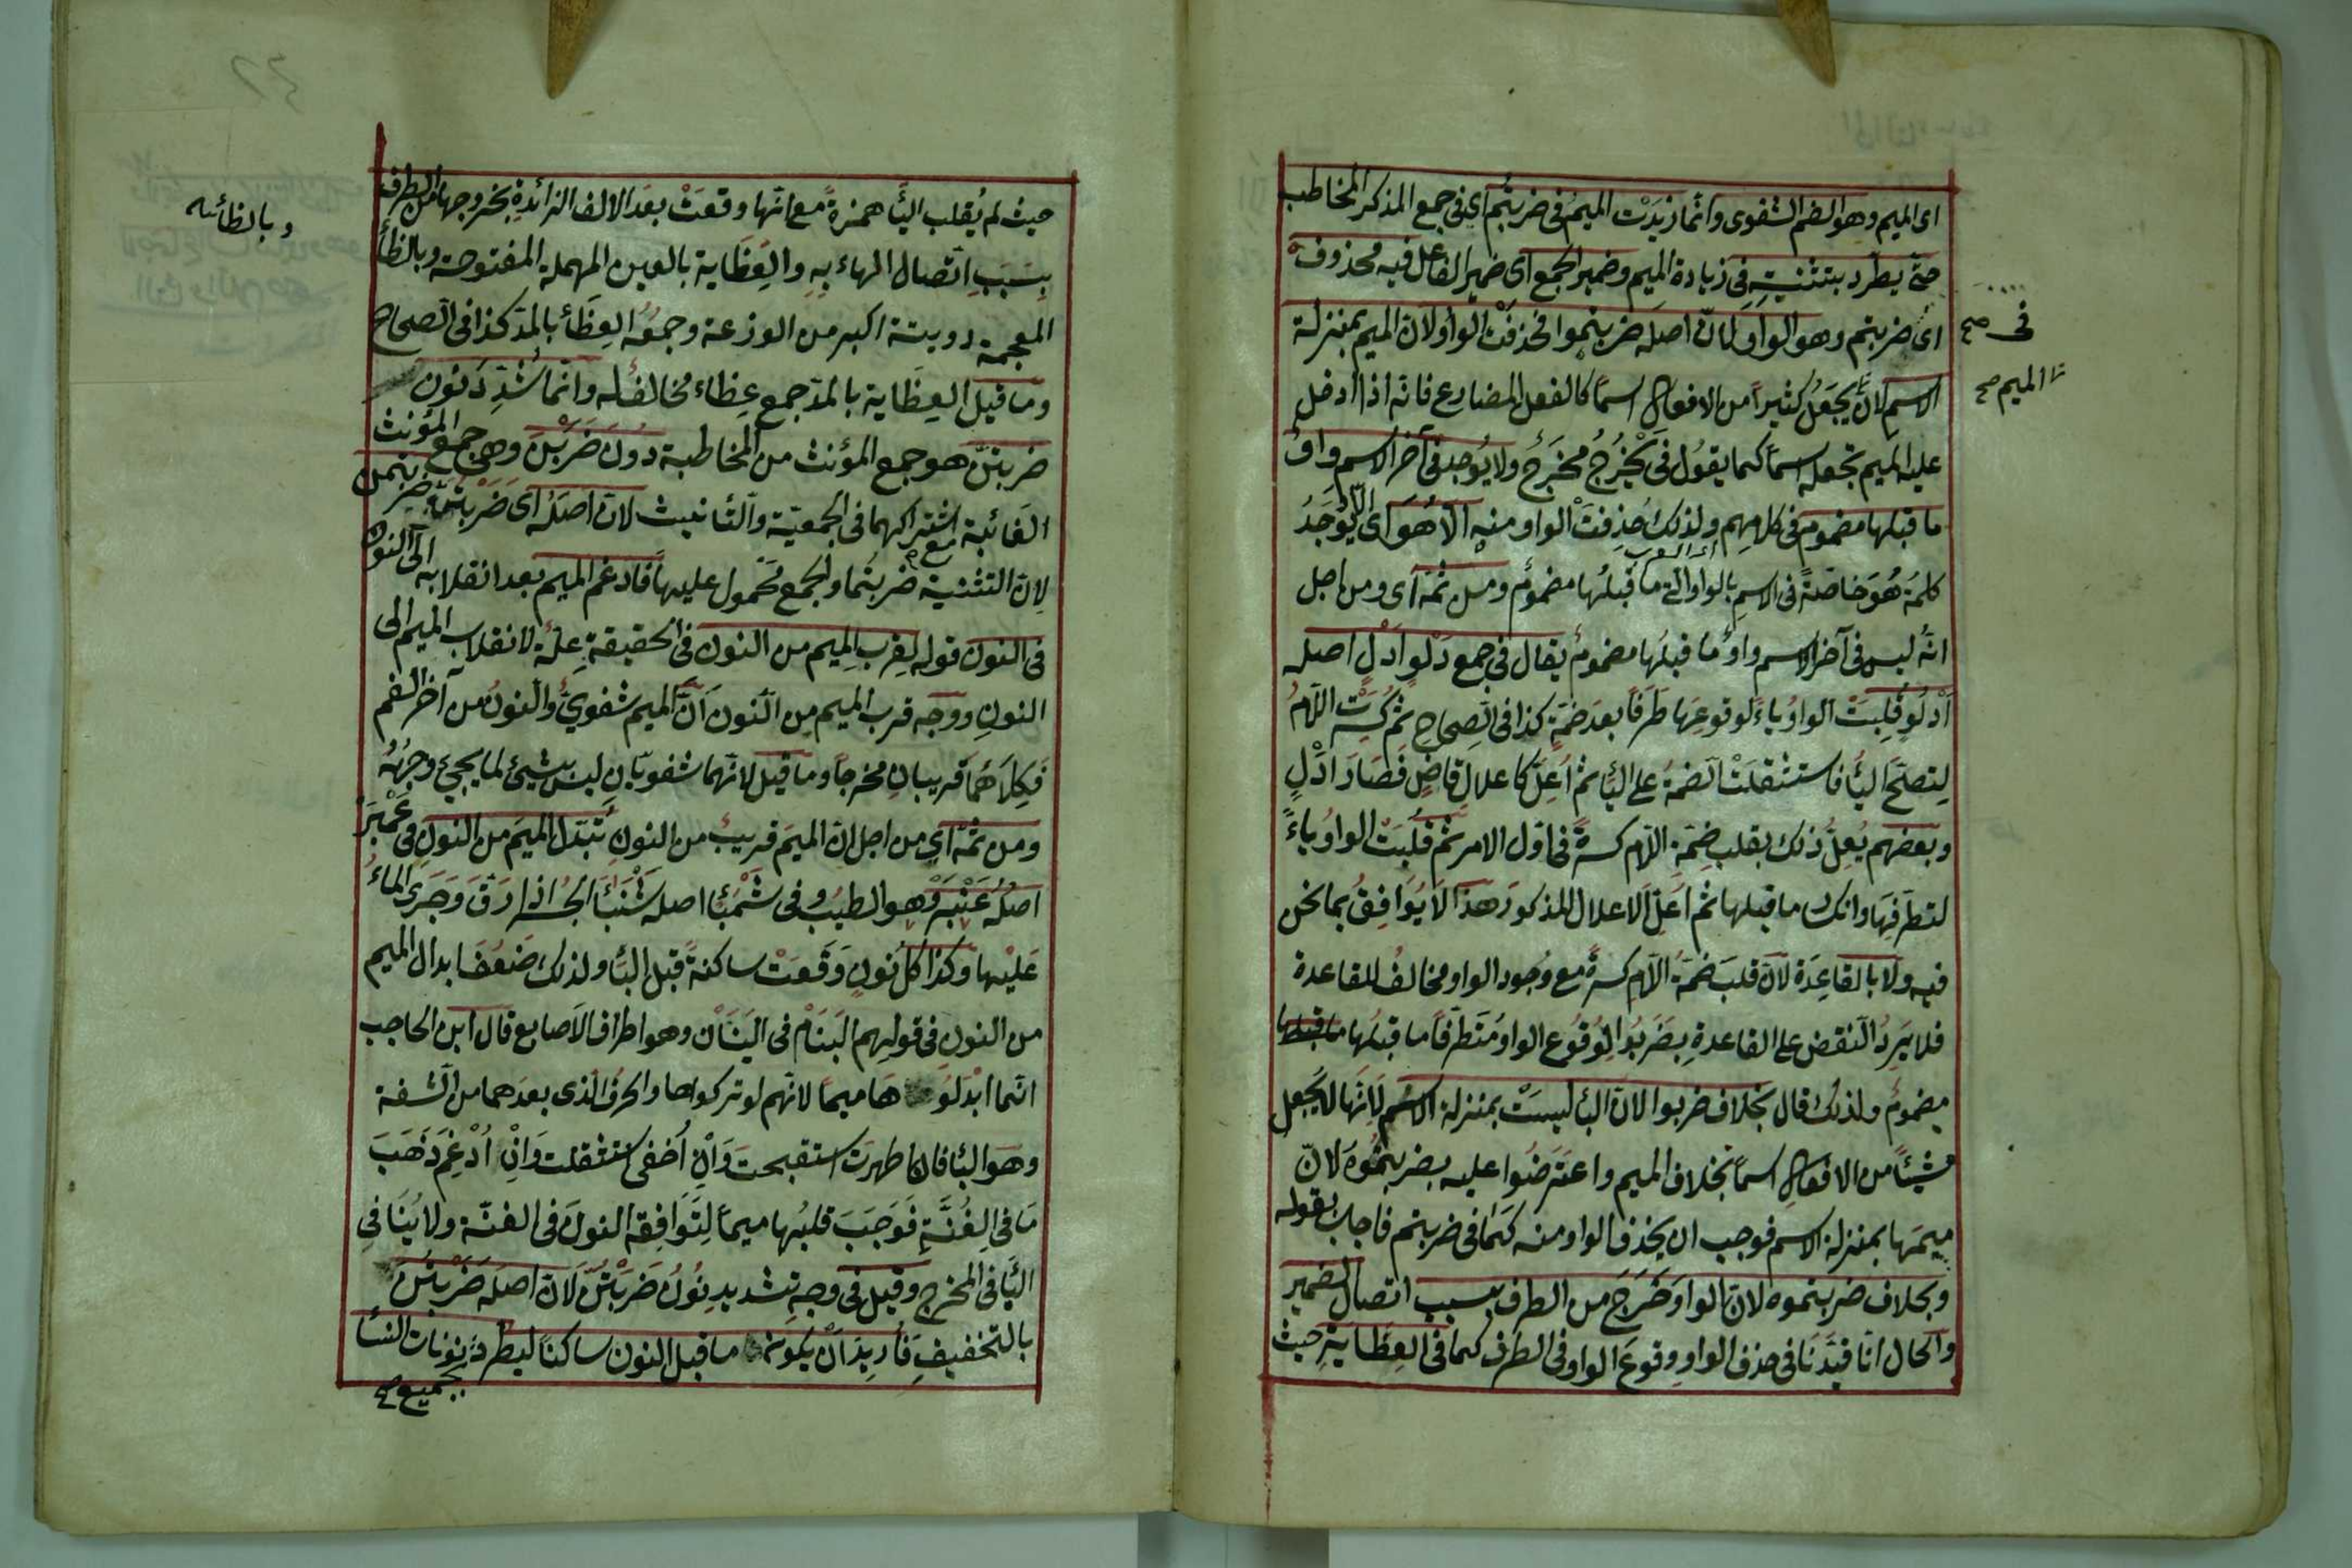 اى الميم وهو الضم الشفوى وانما زيدت الميم فى ضربتم اى فى جمع المذكر المخاطب
حتى يطرد بتثنيته فى زيادة الميم وضمير الجمع اى ضمير الفاعل فيه محذوف
اى ضربتم وهو الواو لان اصله ضربتموا فحذفت الواو لان الميم بمنزلة
فى صح
الاسم لان يجعل كثيرا من الافعال اسما كالفعل المضارع فانه اذا ادخل
الميم صح
عليه الميم تجعله اسما كما يقول فى يخرج مخرج ولا يوجد فى آخر الاسم واو
ما قبلها مضموم فى كلامهم ولذلك حذفت الواو منه الا هو اى الا يوجد
اى العرب
كلمة هو خاصة فى الاسم بالواو التى ما قبلها مضموم ومن ثمة اى ومن اجل
انه ليس فى آخر الاسم واو ما قبلها مضموم يقال فى جمع دلو ادل اصله
ادلو قلبت الواو ياء لوقوعها طرفا بعد ضمة كذا فى الصحاح ثم كسرت اللام
لتصح اليأ فاستثقلت الضمة على اليأ ثم اعل كاعلال قاض فصار ادل
وبعضهم يعل ذلك بقلب ضمة اللام كسرة فى اول الامر ثم قلبت الواو ياء
لتطرفها وانكسار ما قبلها ثم اعل الاعلال المذكور هذا لا يوافق بما نحن
فيه ولا بالقاعدة لان قلب ضمة اللام كسرة مع وجود الواو مخالف للقاعدة
فلا يرد النقض على القاعدة بضربوا لوقوع الواو متطرفا ما قبلها ما قبلها
مضموم ولذلك قال بخلاف ضربوا لان البأ ليست بمنزلة الاسم لانها لا يجعل
شيئا من الافعال اسما بخلاف الميم واعترضوا عليه بضربتموه لان
ميمها بمنزلة الاسم فوجب ان يحذف الواو منه كما فى ضربتم فاجاب بقوله
وبخلاف ضربتموه لان الواو خرج من الطرف بسبب اتصال الضمير
والحال انا قيدنا فى حذف الواو وقوع الواو فى الطرف كما فى العظاية حيث
حيث لم يقلب اليأ همزة مع انها وقعت بعد الالف الزائدة بخروجها من الطرف
وبالظائه
بسبب اتصال الهاء به والعظاية بالعين المهملة المفتوحة وبالظأ
المعجمة دويبة اكبر من الوزغة وجمعه العظأ بالمد كذا فى الصحاح
وما قيل العظاية بالمد جمع عظاء مخالف له وانما شدد نون
ضربتن هو جمع المؤنث من المخاطبة دون ضربن وهى جمع المؤنث
الغائبة مع اشتراكهما فى الجمعية والتأنيث لان اصله اى ضربتن ضربتمن
لان التثنية ضربتما والجمع محمول عليها فادغم الميم بعد انقلابه الى النون
فى النون قوله لقرب الميم من النون فى الحقيقة علة لانقلاب الميم الى
النون ووجه قرب الميم من النون ان الميم شفوى والنون من آخر الفم
فكلاهما قريبان مخرجا وما قيل لانهما شفويان ليس بشيئ لما يجيئ وجهه
ومن ثمة اى من اجل ان الميم قريب من النون تبدل الميم من النون فى عمبر
اصله عنبر وهو الطيب وفى شمبأ اصله شنبأ الخ اذا رق وجرى الماء
عليها وكذا كل نون وقعت ساكنة قبل البأ ولذلك ضعف ابدال الميم
من النون فى قولهم البنام فى البنان وهو اطراف الاصابع قال ابن الحاجب
انما ابدلوها ميما لانهم لو تركوها والحرف الذى بعدهما من الشفة
وهو البأ فان اظهرت استقبحت وان اخفى استثقلت وان ادغم ذهب
ما فى الغنة فوجب قلبها ميما لتوافقه النون فى الغنة ولا ينافى
البأ فى المخرج وقيل فى وجه تشديد نون ضربتن لان اصله ضربتن
بالتخفيف فاريد ان يكون ما قبل النون ساكنا ليطرد نونات النسأ
بجميع صح